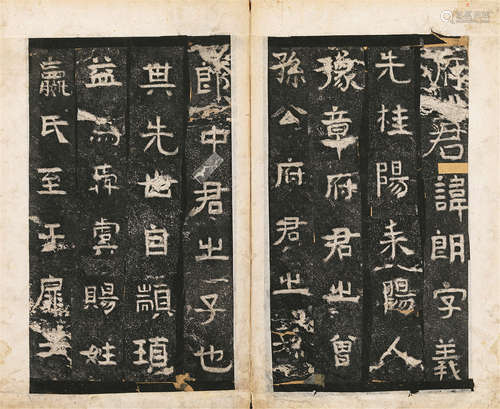 府君諱朗字義
先桂陽耒陽人
豫章府君之曾
孫公府君之
郎中君之子也
其先世自顓頊
益為舜虞賜姓
嬴氏至于扉王